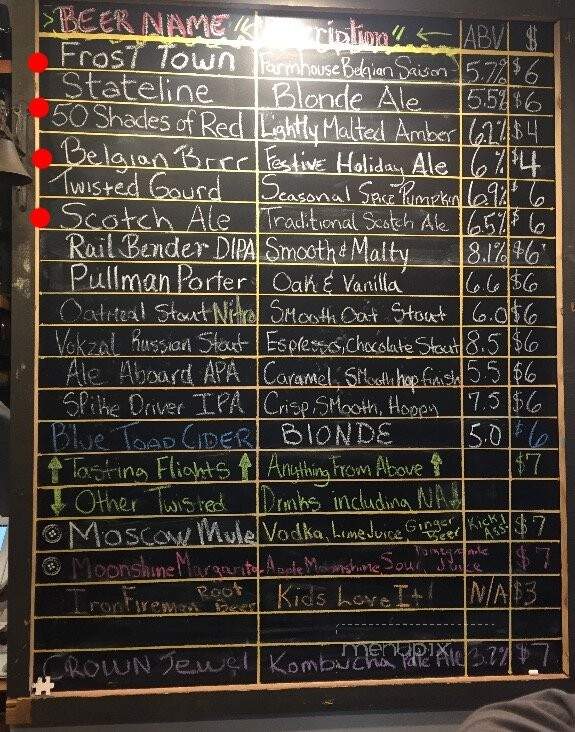 > BEER NAME "Description" ← ABV $
Frost Town Farmhouse Belgian Saison 5.7% $6
Stateline Blonde Ale 5.5% $6
50 Shades of Red Lightly Malted Amber 6.2% $4
Belgian Brrr Festive Holiday Ale 6% $4
Twisted Gourd Seasonal Spice Pumpkin 6.9% $6
Scotch Ale Traditional Scotch Ale 6.5% $6
Rail Bender DIPA Smooth & Malty 8.1% $6
Pullman Porter Oak & Vanilla 6.6 $6
Oatmeal Stout Nitro Smooth Oat Stout 6.0 $6
Vokzal Russian Stout Espresso, Chocolate Stout 8.5 $6
Ale Aboard APA Caramel, Smooth hop finish 5.5 $6
Spike Driver IPA Crisp, Smooth, Hoppy 7.5 $6
Blue Toad CIDER BLONDE 5.0 $6
↑ Tasting Flights ↑ Anything From Above ↑ $7
↓ Other Twisted Drinks including NA ↓
Moscow Mule Vodka, Lime Juice, Ginger Beer Kick Ass! $7
Moonshine Margarita Apple Moonshine Sour, Juice $7
Iron Fireman Root Beer Kids Love It! N/A $3
menupix
CROWN Jewel Kombucha Pale Ale 3.2% $7
#